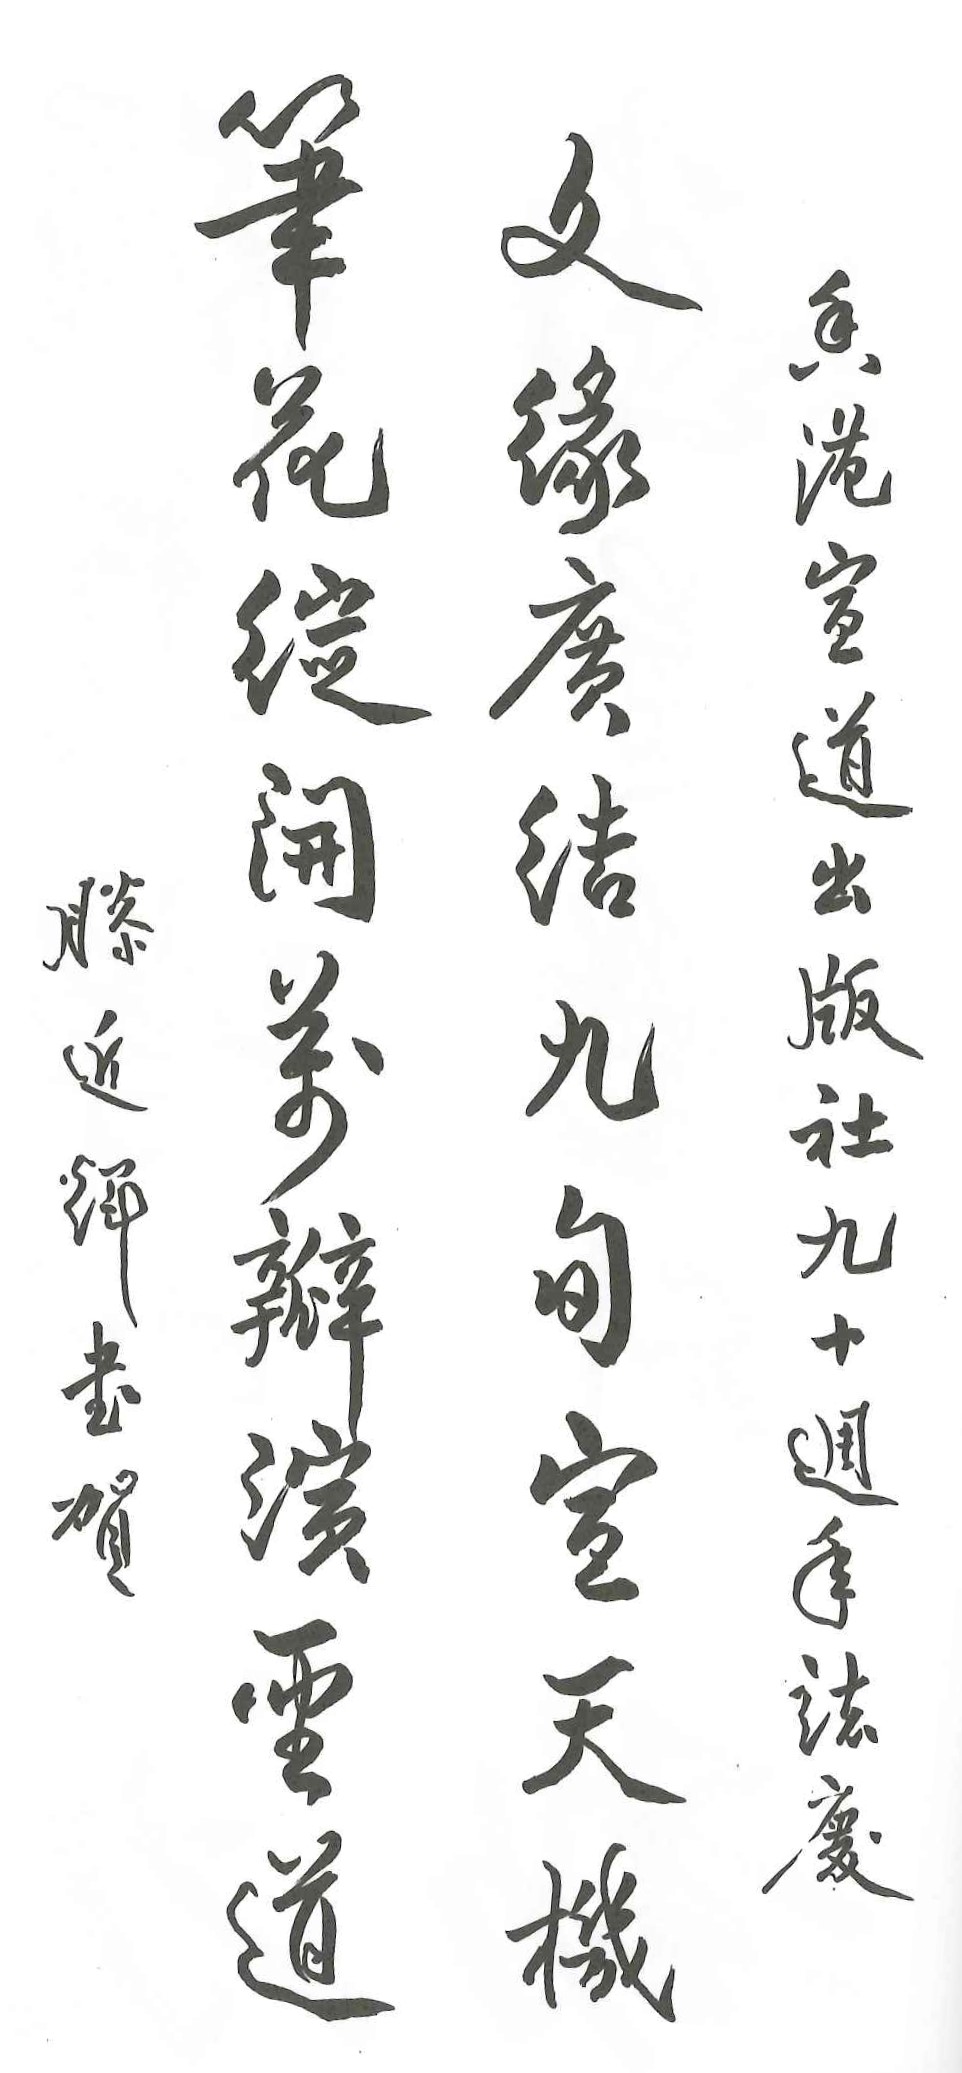 香港宣道出版社九十週年誌慶
文緣廣結九旬宣天機
筆花綻開萬瓣演聖道
滕近輝書賀